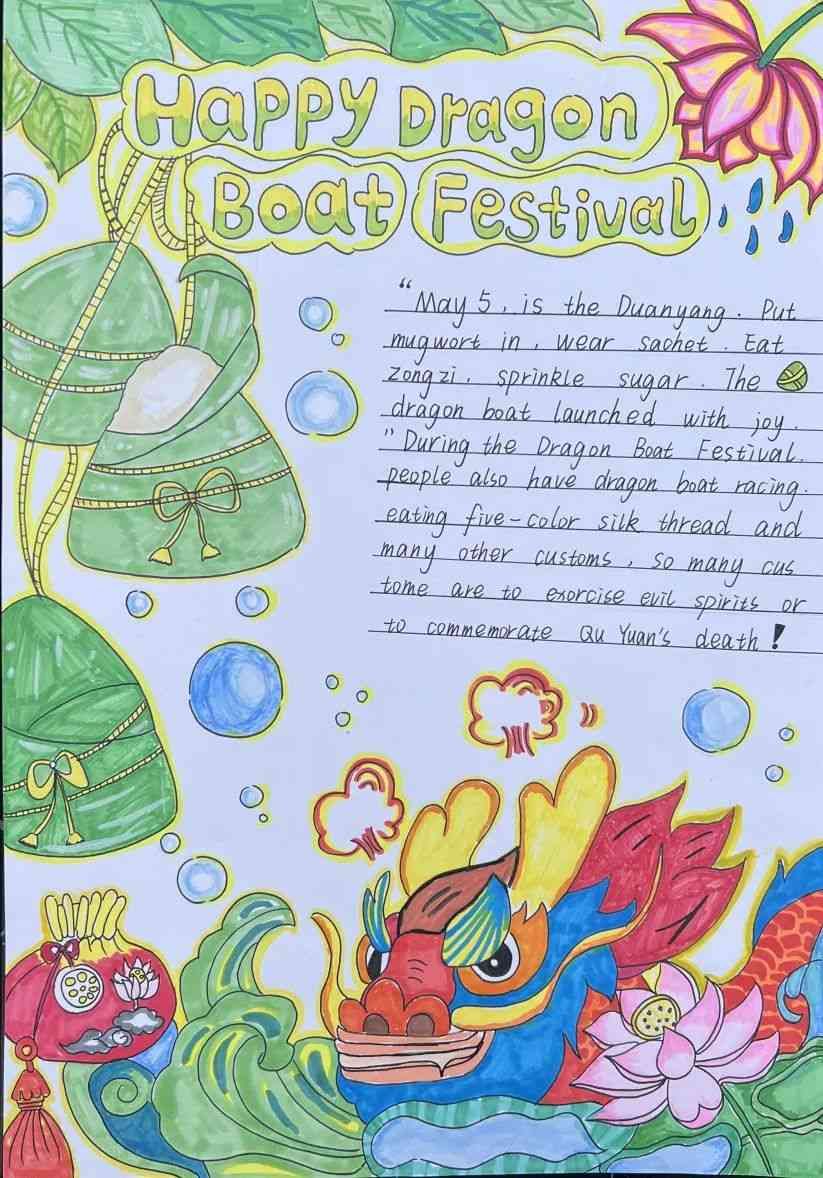 Happy Dragon
Boat Festival
"May 5, is the Duanyang. Put
mugwort in, wear sachet. Eat
zongzi, sprinkle sugar. The
dragon boat launched with joy.
"During the Dragon Boat Festival.
people also have dragon boat racing.
eating five-color silk thread and
many other customs, so many cus
tome are to exorcise evil spirits or
to commemorate Qu Yuan's death!